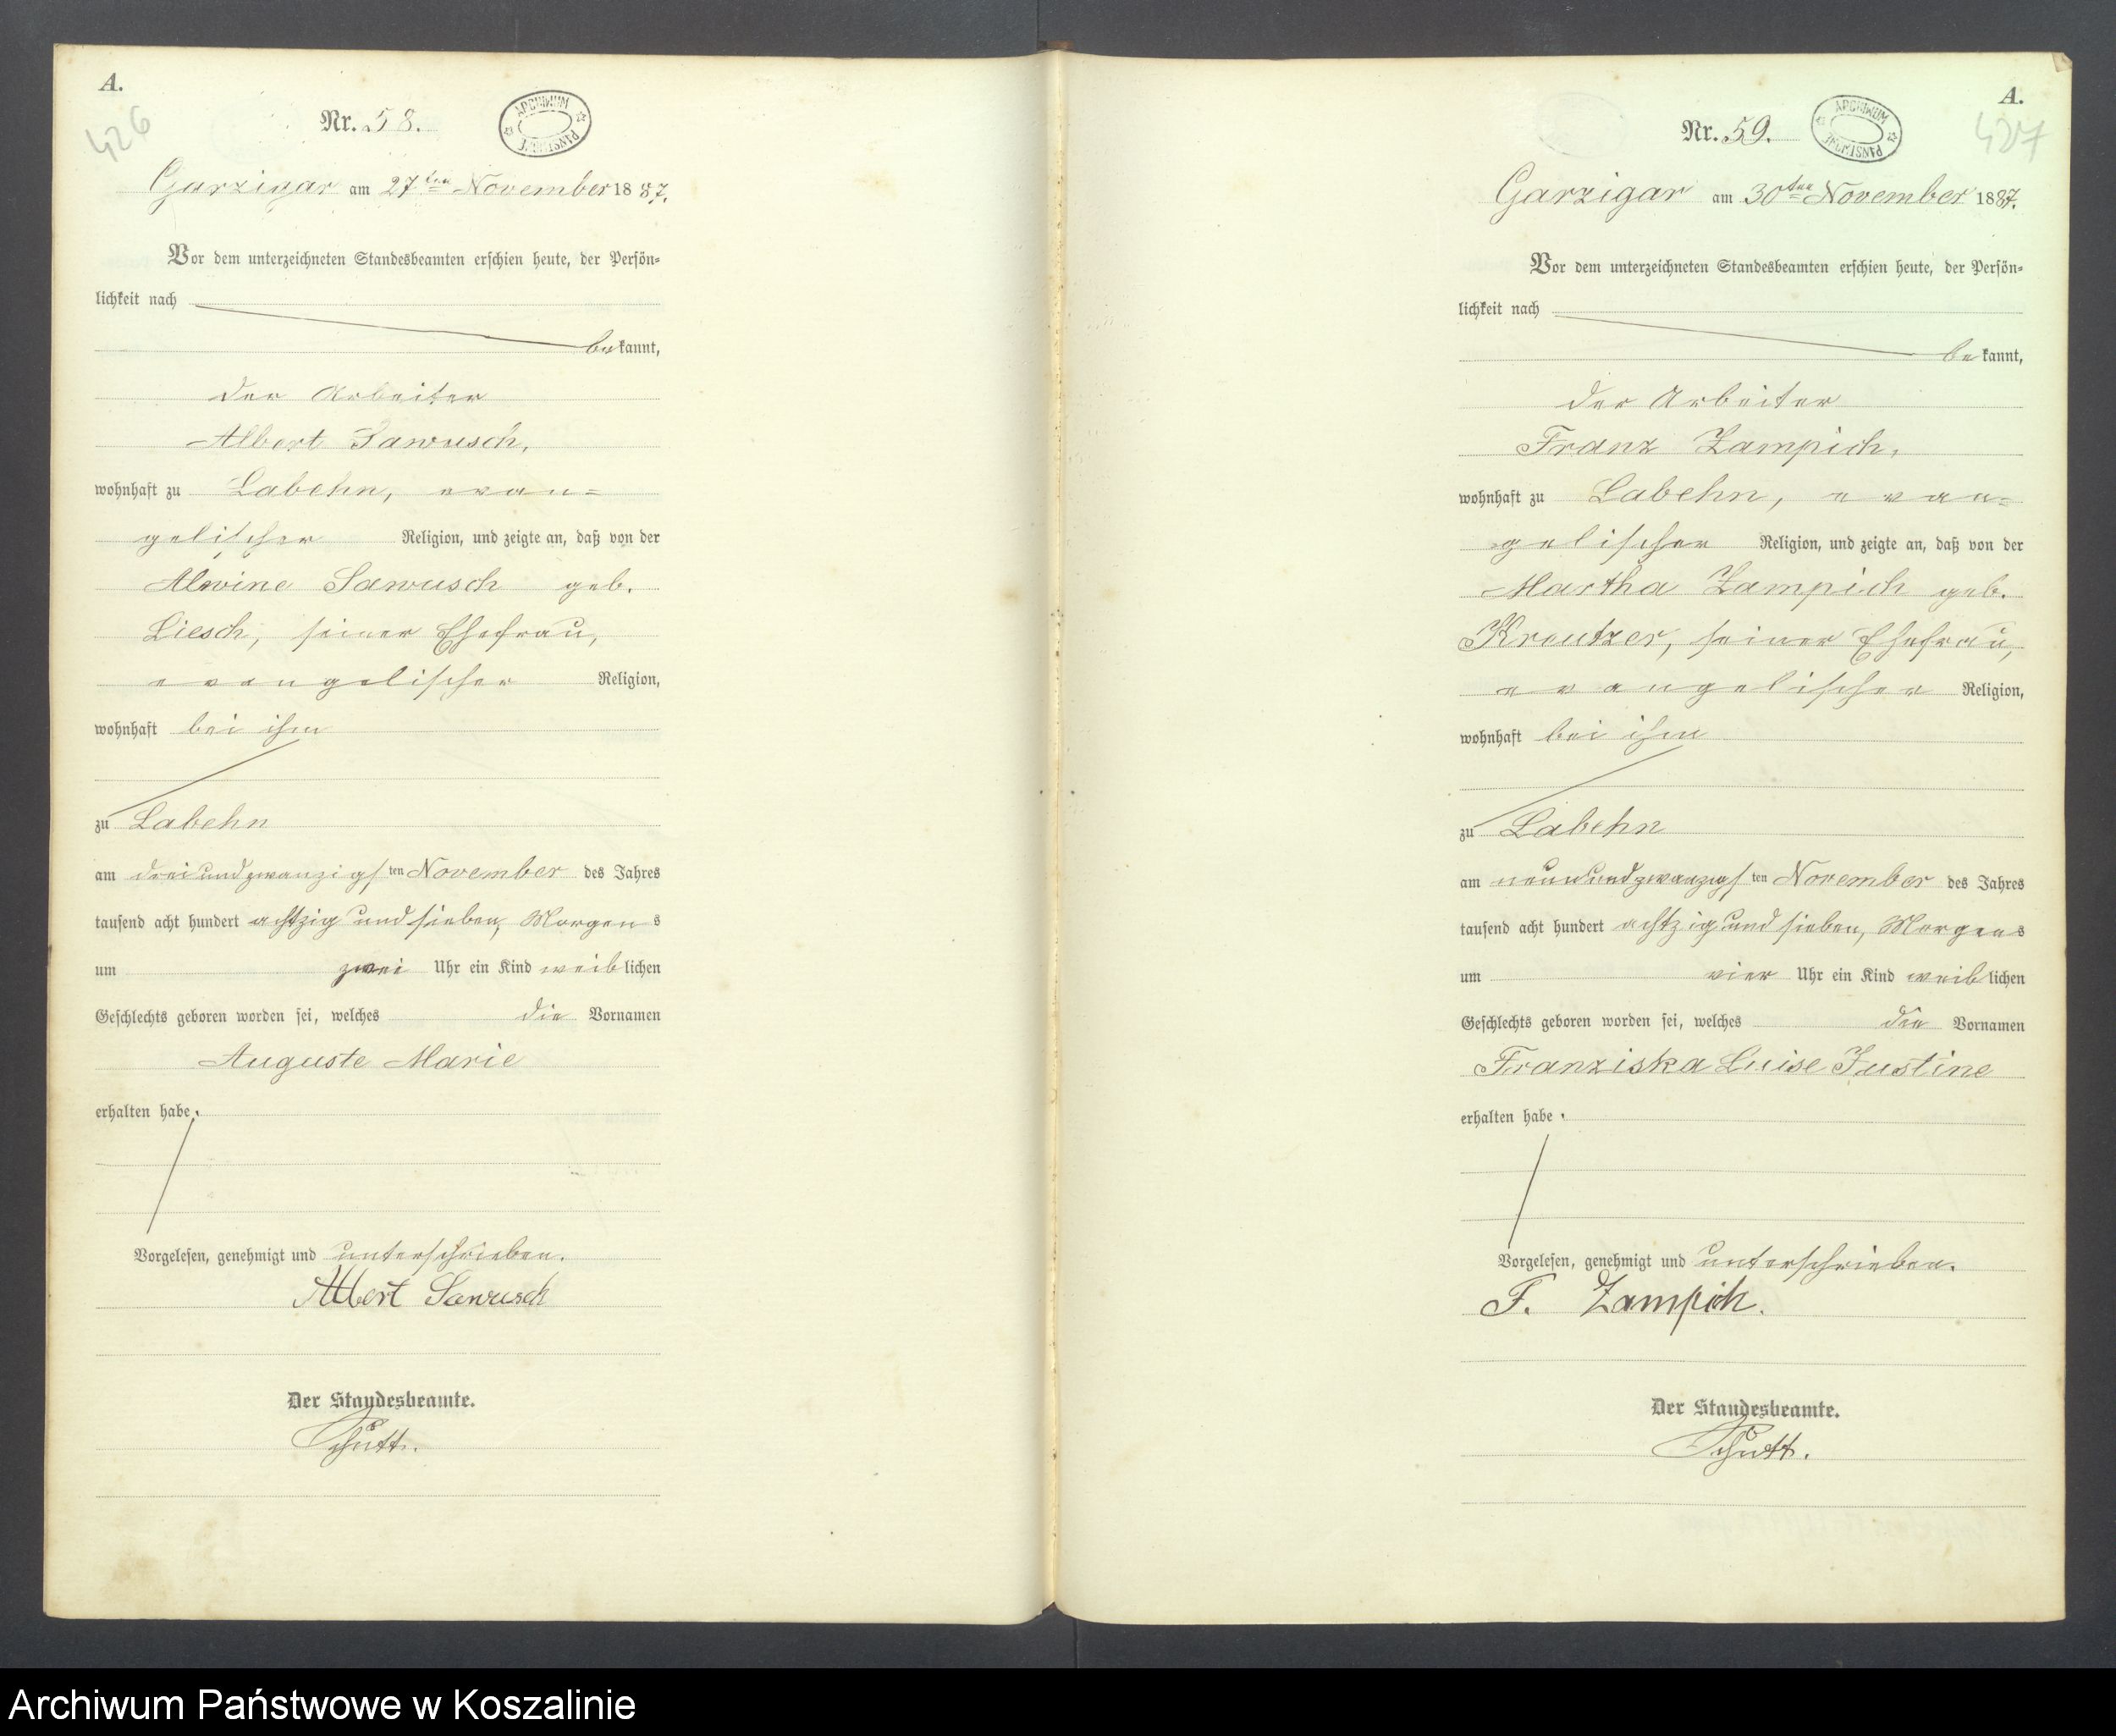 A.
426
Nr. 58.
ARCHIWUM
PAŃSTWOWE
Garzigar am 27ten November 1887.
Vor dem unterzeichneten Standesbeamten erschien heute, der Persön-
lichkeit nach
bekannt,
der Arbeiter
Albert Sawusch,
wohnhaft zu Labehn, evan=
gelischer Religion, und zeigte an, daß von der
Alwine Sawusch geb.
Liesch, seiner Ehefrau,
evangelischer Religion,
wohnhaft bei ihm
zu Labehn
am dreiundzwanzigsten November des Jahres
tausend acht hundert achtzig und sieben, Morgens
um zwei Uhr ein Kind weiblichen
Geschlechts geboren worden sei, welches die Vornamen
Auguste Marie
erhalten habe.
Vorgelesen, genehmigt und unterschrieben.
Albert Sawusch
Der Standesbeamte.
Schutt.
A.
427
Nr. 59.
ARCHIWUM
PAŃSTWOWE
Garzigar am 30ten November 1887.
Vor dem unterzeichneten Standesbeamten erschien heute, der Persön-
lichkeit nach
bekannt,
der Arbeiter
Franz Zampich,
wohnhaft zu Labehn, evan=
gelischer Religion, und zeigte an, daß von der
Martha Zampich geb.
Kreutzer, seiner Ehefrau,
evangelischer Religion,
wohnhaft bei ihm
zu Labehn
am neunundzwanzigsten November des Jahres
tausend acht hundert achtzig und sieben, Morgens
um vier Uhr ein Kind weiblichen
Geschlechts geboren worden sei, welches die Vornamen
Franziska Luise Justine
erhalten habe.
Vorgelesen, genehmigt und unterschrieben.
F. Zampich.
Der Standesbeamte.
Schutt.
Archiwum Państwowe w Koszalinie